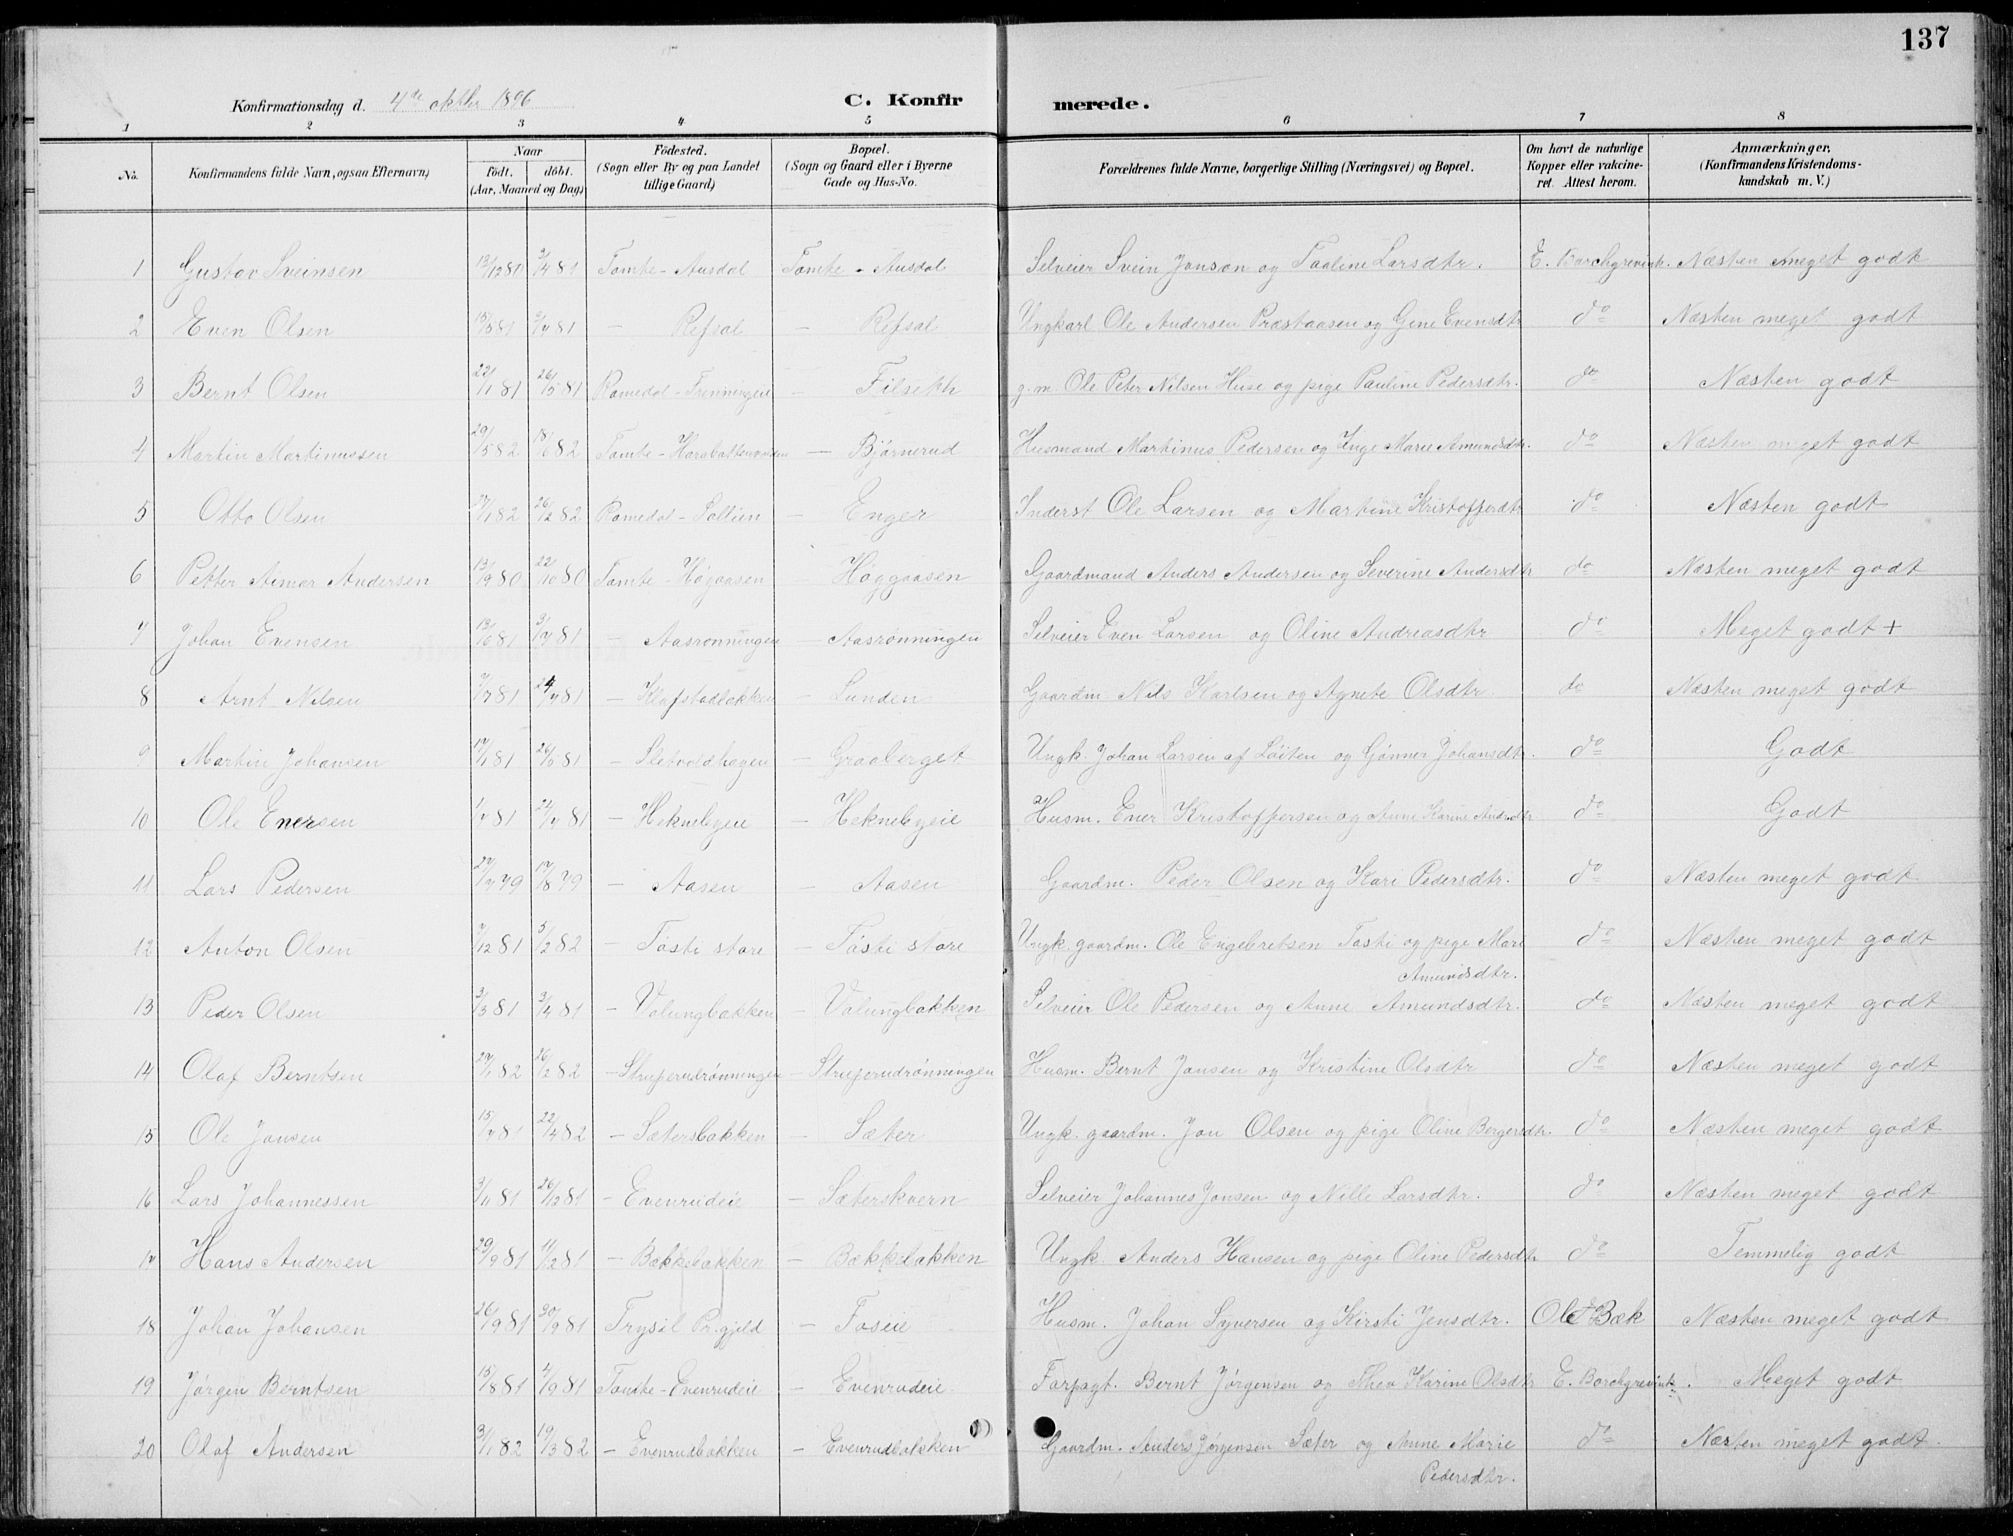 137
Konfirmationsdag d. 4de oktbr 1896 C. Konfirmerede.
1 2 3 4 5 6 7 8
No. Konfirmandens fulde Navn, ogsaa Efternavn) Naar født. døbt. (Aar, Maaned og Dag) Fødested. (Sogn eller By og paa Landet tillige Gaard) Bopæl. (Sogn og Gaard eller i Byerne Gade og Hus-No. Forældrenes fulde Navne, borgerlige Stilling (Næringsvei) og Bopæl. Om havt de naturlige Kopper eller vakcineret. Attest herom. Anmærkninger. (Konfirmandens Kristendomskundskab m. V.)
1 Gustav Sveinsen 3/4 81 Tomte - Ausdal Tomte - Ausdal Selveier Svein Jonson og Paaline Larsdtr. E. Borchgrevink. Næsten meget godt
2 Even Olsen 81 81 — Refsal — Refsal Ungkarl Ole Andersen Præstaasen og Gine Evensdtr do Næsten meget godt
3 Bernt Olsen 22/1 81 26/5 81 Romedal - — Filseth g.m. Ole Peter Nilsen Huse og pige Pauline Pedersdtr. do Næsten godt
4 Martin Martinussen 29/5 82 18/6 82 Tomte - — Bjørnerud Husmand Martinus Pedersen og Inge Marie Amundsdtr. do Næsten meget godt
5 Otto Olsen 27/1 82 26/2 82 Romedal - — Enger Inderst Ole Larsen og Martine Kristofferdtr do Næsten godt
6 Petter Aimar Andersen 13/9 80 22/10 80 Tomte - Høgaasen — Høggaasen Gaardmand Anders Andersen og Severine Andersdtr do Næsten meget godt
7 Johan Evensen 13/6 81 3/7 81 — Aasrønningen — Aasrønningen Selveier Even Larsen og Oline Andreasdtr do Meget godt +
8 Arnt Nilsen 7/7 81 24/7 81 — Klofstadbakken — Lunden Gaardm. Nils Karlsen og Agnete Olsdtr do Næsten meget godt
9 Martin Johansen 17/1 81 26/6 81 — Sletvoldhagen — Graaberget Ungk. Johan Larsen af Løiten og Gønner Johansdtr. do Godt
10 Ole Enersen 1/7 81 24/7 81 — Heknebyeie — Heknebyeie Husm. Ener Kristoffersen og Anne Karine do Godt
11 Lars Pedersen 27/7 79 17/8 79 — Aasen — Aasen Gaardm. Peder Olsen og Kari Pedersdtr. do Næsten meget godt
12 Anton Olsen 7/12 81 5/2 82 — Tøsti store — Tøsti store Ungk. gaardm. Ole Engebretsen Tøsti og pige Mari Amundsdtr. do Næsten meget godt
13 Peder Olsen 3/3 81 3/4 81 — Volungbakken — Volungbakken Selveier Ole Pedersen og Anne Amundsdtr. do Næsten meget godt
14 Olaf Berntsen 27/1 82 26/2 82 — Struperudrønningen — Struperudrønningen Husm. Bernt Jonsen og Kristine Olsdtr do Næsten meget godt
15 Ole Jonsen 15/7 81 22/4 82 — Sætersbakken — Sæter Ungk. gaardm. Jon Olsen og pige Oline Bergersdtr. do Næsten meget godt
16 Lars Johannessen 3/11 81 26/12 81 — Evenrudeie — Sæterskvern Selveier Johannes Jonsen og Nille Larsdtr. do Næsten meget godt
17 Hans Andersen 29/9 81 11/12 81 — Bækkebakken — Bækkebakken Ungk. Anders Hansen og pige Oline Pedersdtr do Temmelig godt
18 Johan Johansen 26/9 81 30/9 81 Trysil Pr.gjeld — Foseie Husm. Johan Syversen og Kirsti Jensdtr. Ole Bæk Næsten meget godt
19 Jørgen Berntsen 15/8 81 4/9 81 Tomte - Evenrudeie — Evenrudeie Forpagt. Bernt Jørgensen og Thea Karine Olsdtr E. Borchgrevink. Meget godt
20 Olaf Andersen 31/1 82 19/3 82 — Evenrudbakken — Evenrudbakken Gaardm. Anders Jørgensen Sæter og Anne Marie Pedersdtr. do Næsten meget godt.